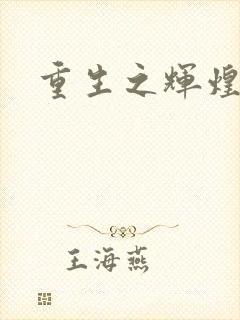 重生之辉煌
王海燕